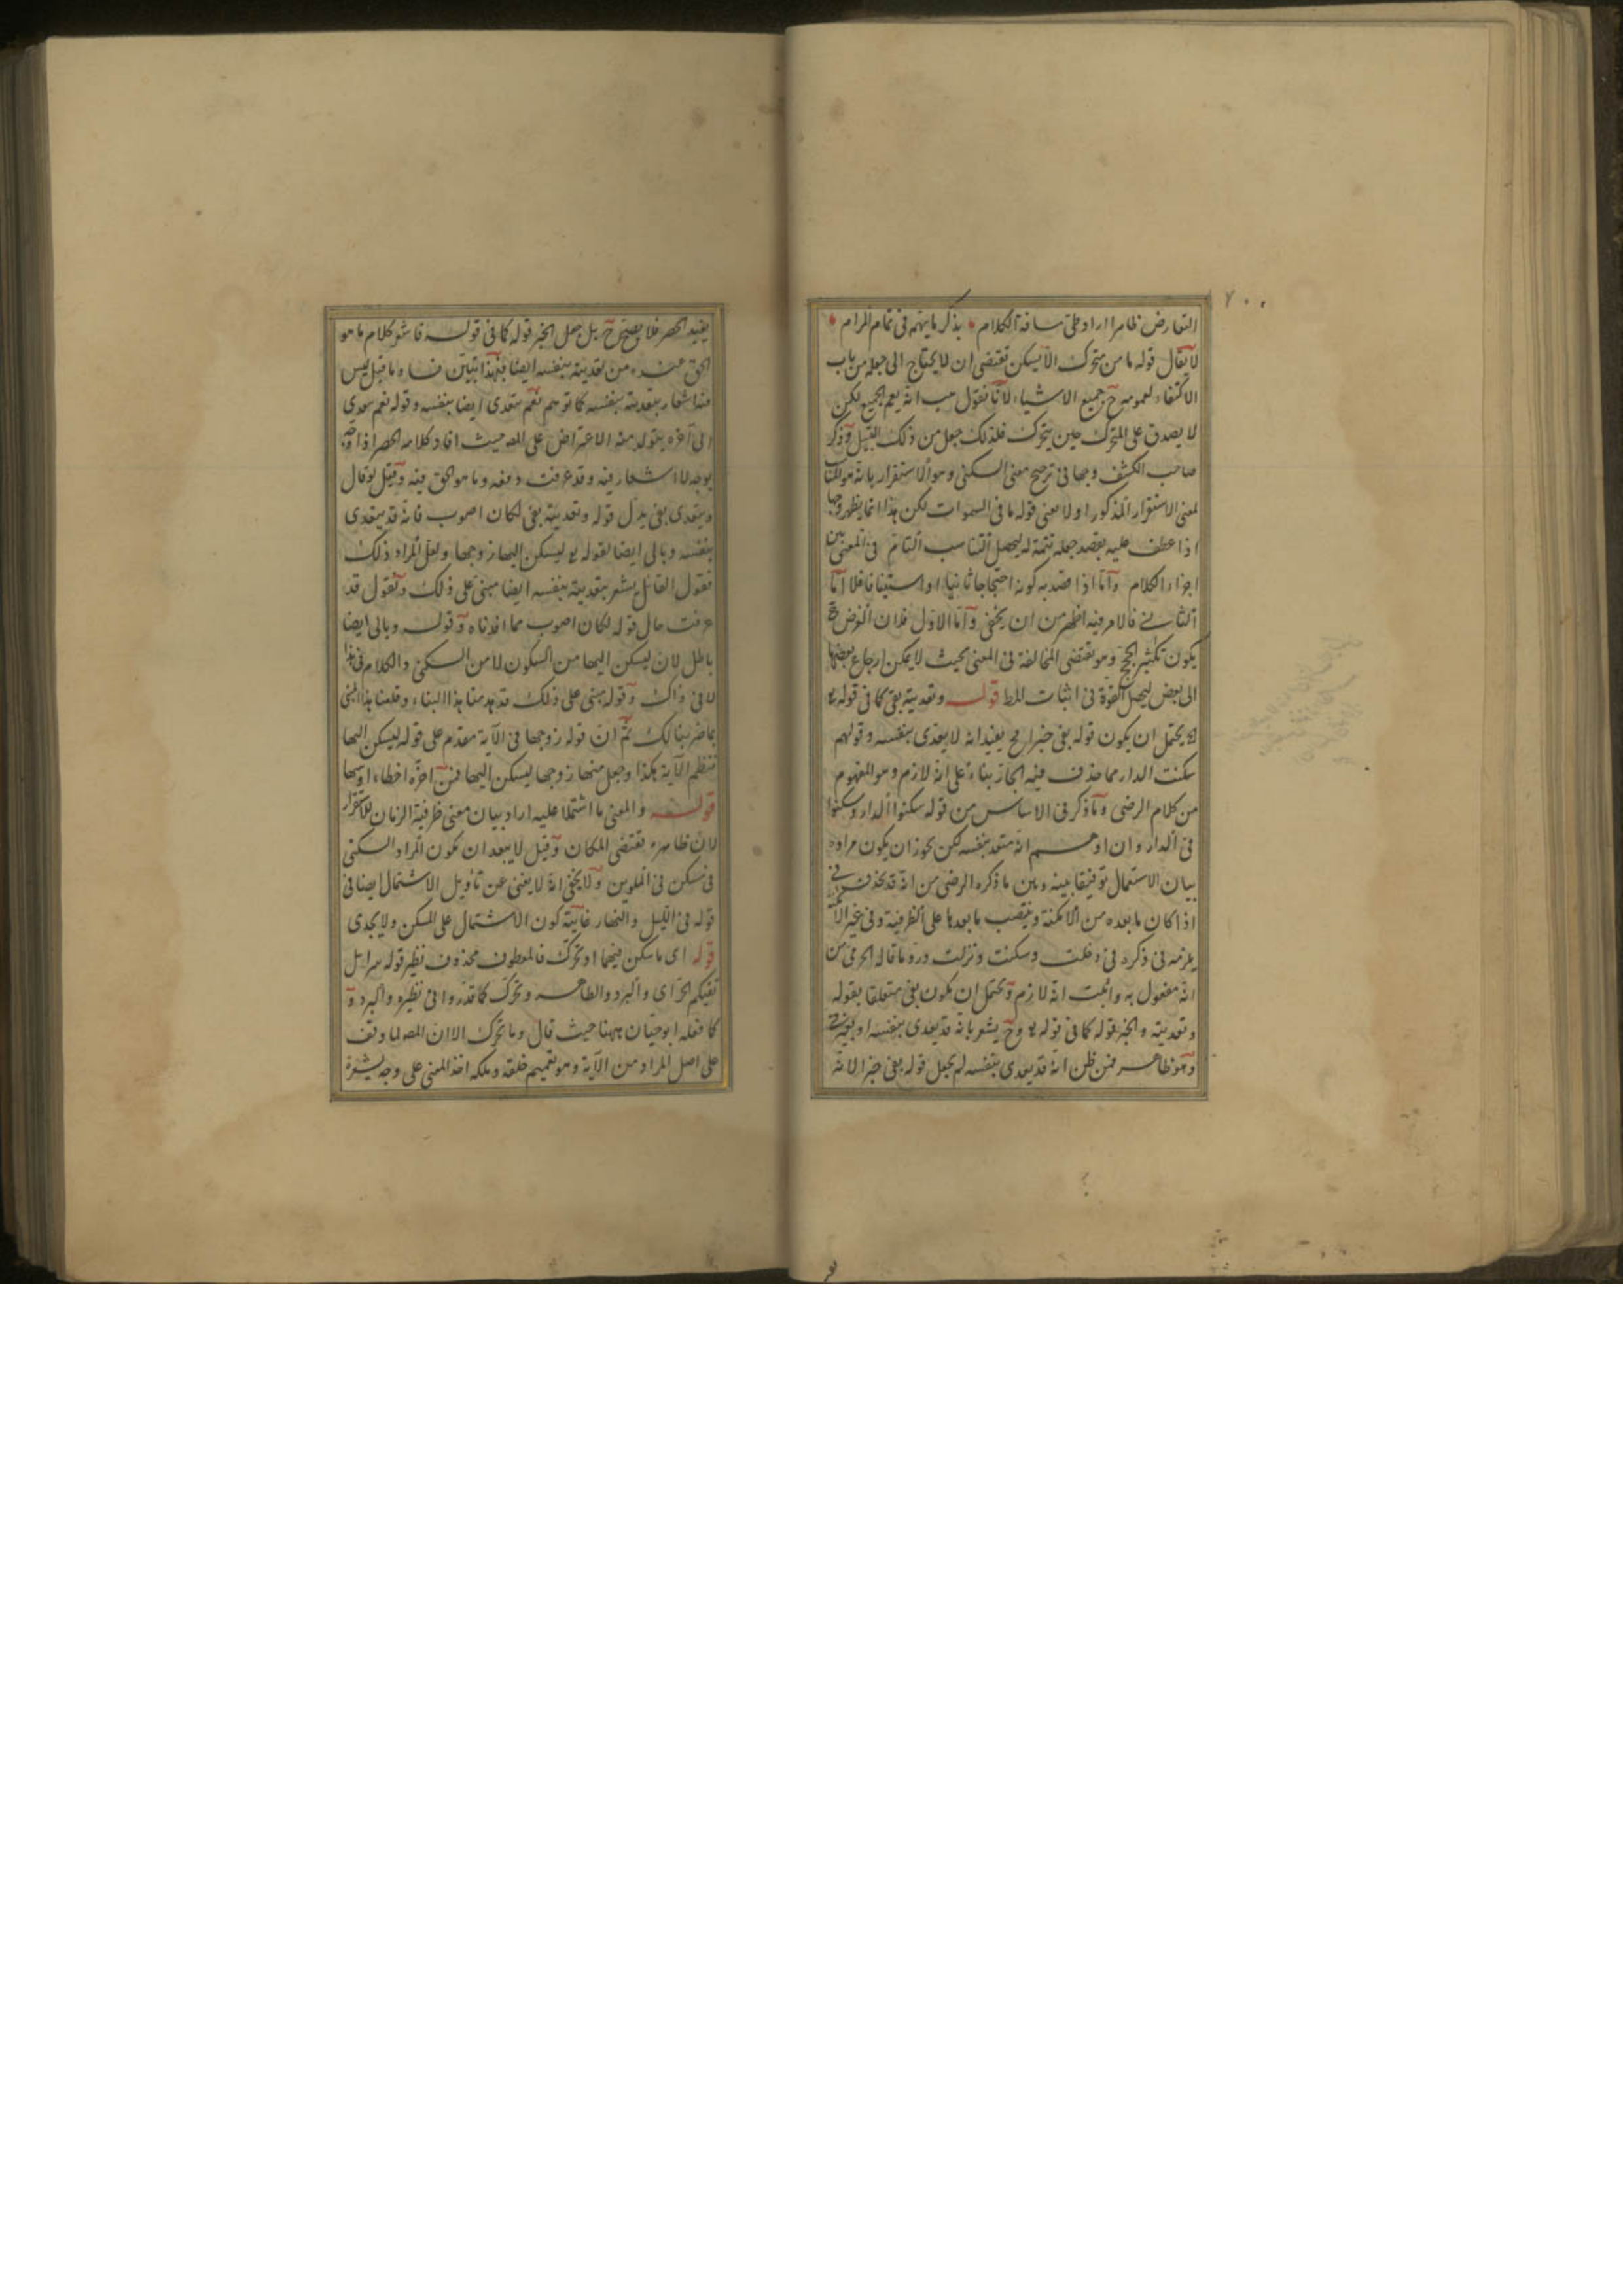 ٧٠٠
التعارض ظاهرا اراد طى مسافة الكلام بذكر ما يتهم فى تمام المرام
لا يقال قوله ما من متحرك الا يسكن تقتضى ان لا يحتاج الى جعله من باب
الاكتفاء لعمومه ح جميع الاشياء لانا نقول هب انه يعم الجميع لكن
لا يصدق على المتحرك حين يتحرك فلذلك جعل من ذلك القبيل وذكر
صاحب الكشف وجها فى ترجيح معنى السكنى وهو الاستقرار بانه هو المناسب
لمعنى الاستقرار المذكور اولا معنى قوله ما فى السموات لكن هذا انما يظهر وجها
اذا عطف عليه بقصد جعله تتمة له ليحصل التناسب التام فى المعنى بين
اجزاء الكلام واما اذا قصد به كونه احتجاجا ثانيا او استينافا فلا اما
الثانى فالامر فيه اظهر من ان يخفى واما الاول فلان الغرض ح
يكون تكثير الحجج وهو يقتضى المخالفة فى المعنى بحيث لا يمكن ارجاع بعضها
الى بعض ليحصل القوة فى اثبات المط قوله وتعديته بفى كما فى قوله تع
يحتمل ان يكون قوله بفى خبرا فح يفيد انه لا يتعدى بنفسه وقولهم
سكنت الدار مما حذف فيه الجار بناء على انه لازم وهو المفهوم
من كلام الرضى وما ذكر فى الاساس من قوله سكنوا الدار وسكنوا
فى الدار وان اوهم انه متعد بنفسه لكن يجوز ان يكون مراده
بيان الاستعمال توفيقا بينه وبين ما ذكره الرضى من انه قد يحذف فى
اذا كان ما بعده من الامكنة وينتصب ما بعدها على الظرفية وفى غير الامكنة
يلزمه فى ذكره فى دخلت وسكنت ونزلت ورد ما قاله الجرمى من
انه مفعول به واثبت انه لازم ويحتمل ان يكون بفى متعلقا بقوله
وتعديته والخبر قوله كما فى قوله تع وح يشعر بانه قد يعدى بنفسه او بغير فى
وهو ظاهر فمن ظن انه قد يعدى بنفسه لم يجعل قوله بفى خبرا لانه
يفيد الحصر فلا يصح ح بل جعل الخبر قوله كما فى قوله فاشعر كلامه ما هو
الحق عنده من تعديته بنفسه ايضا فبهذا تبين فساد ما قيل ليس
فيه اشعار بتعديته بنفسه كما توهم نعم يتعدى ايضا بنفسه وقوله نعم يتعدى
الى آخره يتولد منه الاعتراض على المص حيث افاد كلامه الحصر اذا وجه
بوجه لا اشعار فيه وقد عرفت دفعه وما هو الحق فيه وقيل لو قال
ويتعدى بفى بدل قوله وتعديته بفى لكان اصوب فانه قد يتعدى
بنفسه وبالى ايضا لقوله تع ليسكن اليها زوجها ولعل المراد ذلك
فقول القائل يشعر بتعديته بنفسه ايضا مبنى على ذلك ونقول قد
عرفت حال قوله لكان اصوب مما افدناه وقوله وبالى ايضا
باطل لان ليسكن اليها من السكون لا من السكنى والكلام فى هذا
لا فى ذاك وقوله مبنى على ذلك قد هدمنا هذا البناء وقلعنا هذا المبنى
بما ضربنا لك ثم ان قوله زوجها فى الآية مقدم على قوله ليسكن اليها
فنظم الآية هكذا وجعل منها زوجها ليسكن اليها فمن اخره اخطاء او سها
قوله والمعنى ما اشتملا عليه اراد بيان معنى ظرفية الزمان للاستقرار
لان ظاهره يقتضى المكان وقيل لا يبعد ان يكون المراد السكنى
فى مسكن فى الملوين ولا يخفى انه لا يغنى عن تأويل الاشتمال ايضا فى
قوله فى الليل والنهار غايته كون الاشتمال على المسكن ولا يجدى
قوله اى ما سكن فيهما او تحرك فالمعطوف محذوف نظير قوله سرابيل
تقيكم الحر اى والبرد والظاهر وتحرك كما قدروا فى نظيره والبرد و
كما فعله ابو حيان ههنا حيث قال وما تحرك الا ان المص لما وقف
على اصل المراد من الآية وهو تعميم خلقه وملكه اخذ المعنى على وجه يشعره